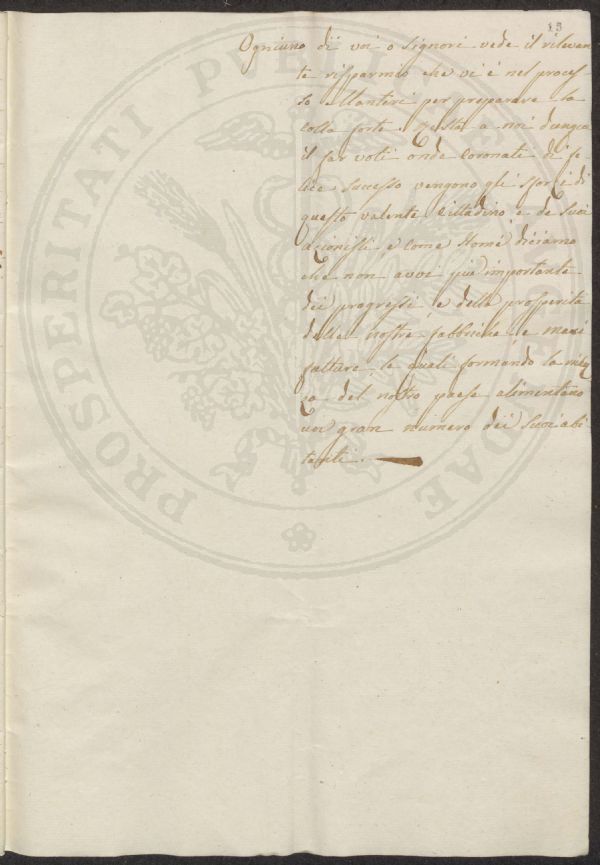 13
Ogniuno di voi o Signori vede il rilevan
te risparmio che vi è nel proces
so Mantieri per preparare la
colla forte. Resta a noi dunque
il far voti onde coronati di fe
lice successo vengono gli sforzi di
questo valente Cittadino e de suoi
azionisti, e come diciamo
che non avvi più importante
dei progressi, e della prosperità
delle nostre fabbriche, e mani
fatture, le quali formando la ric
del nostro paese alimentano
un gran numero dei suoi abi
tanti.
PROSPERITATI PUBLICAE AUGENDAE